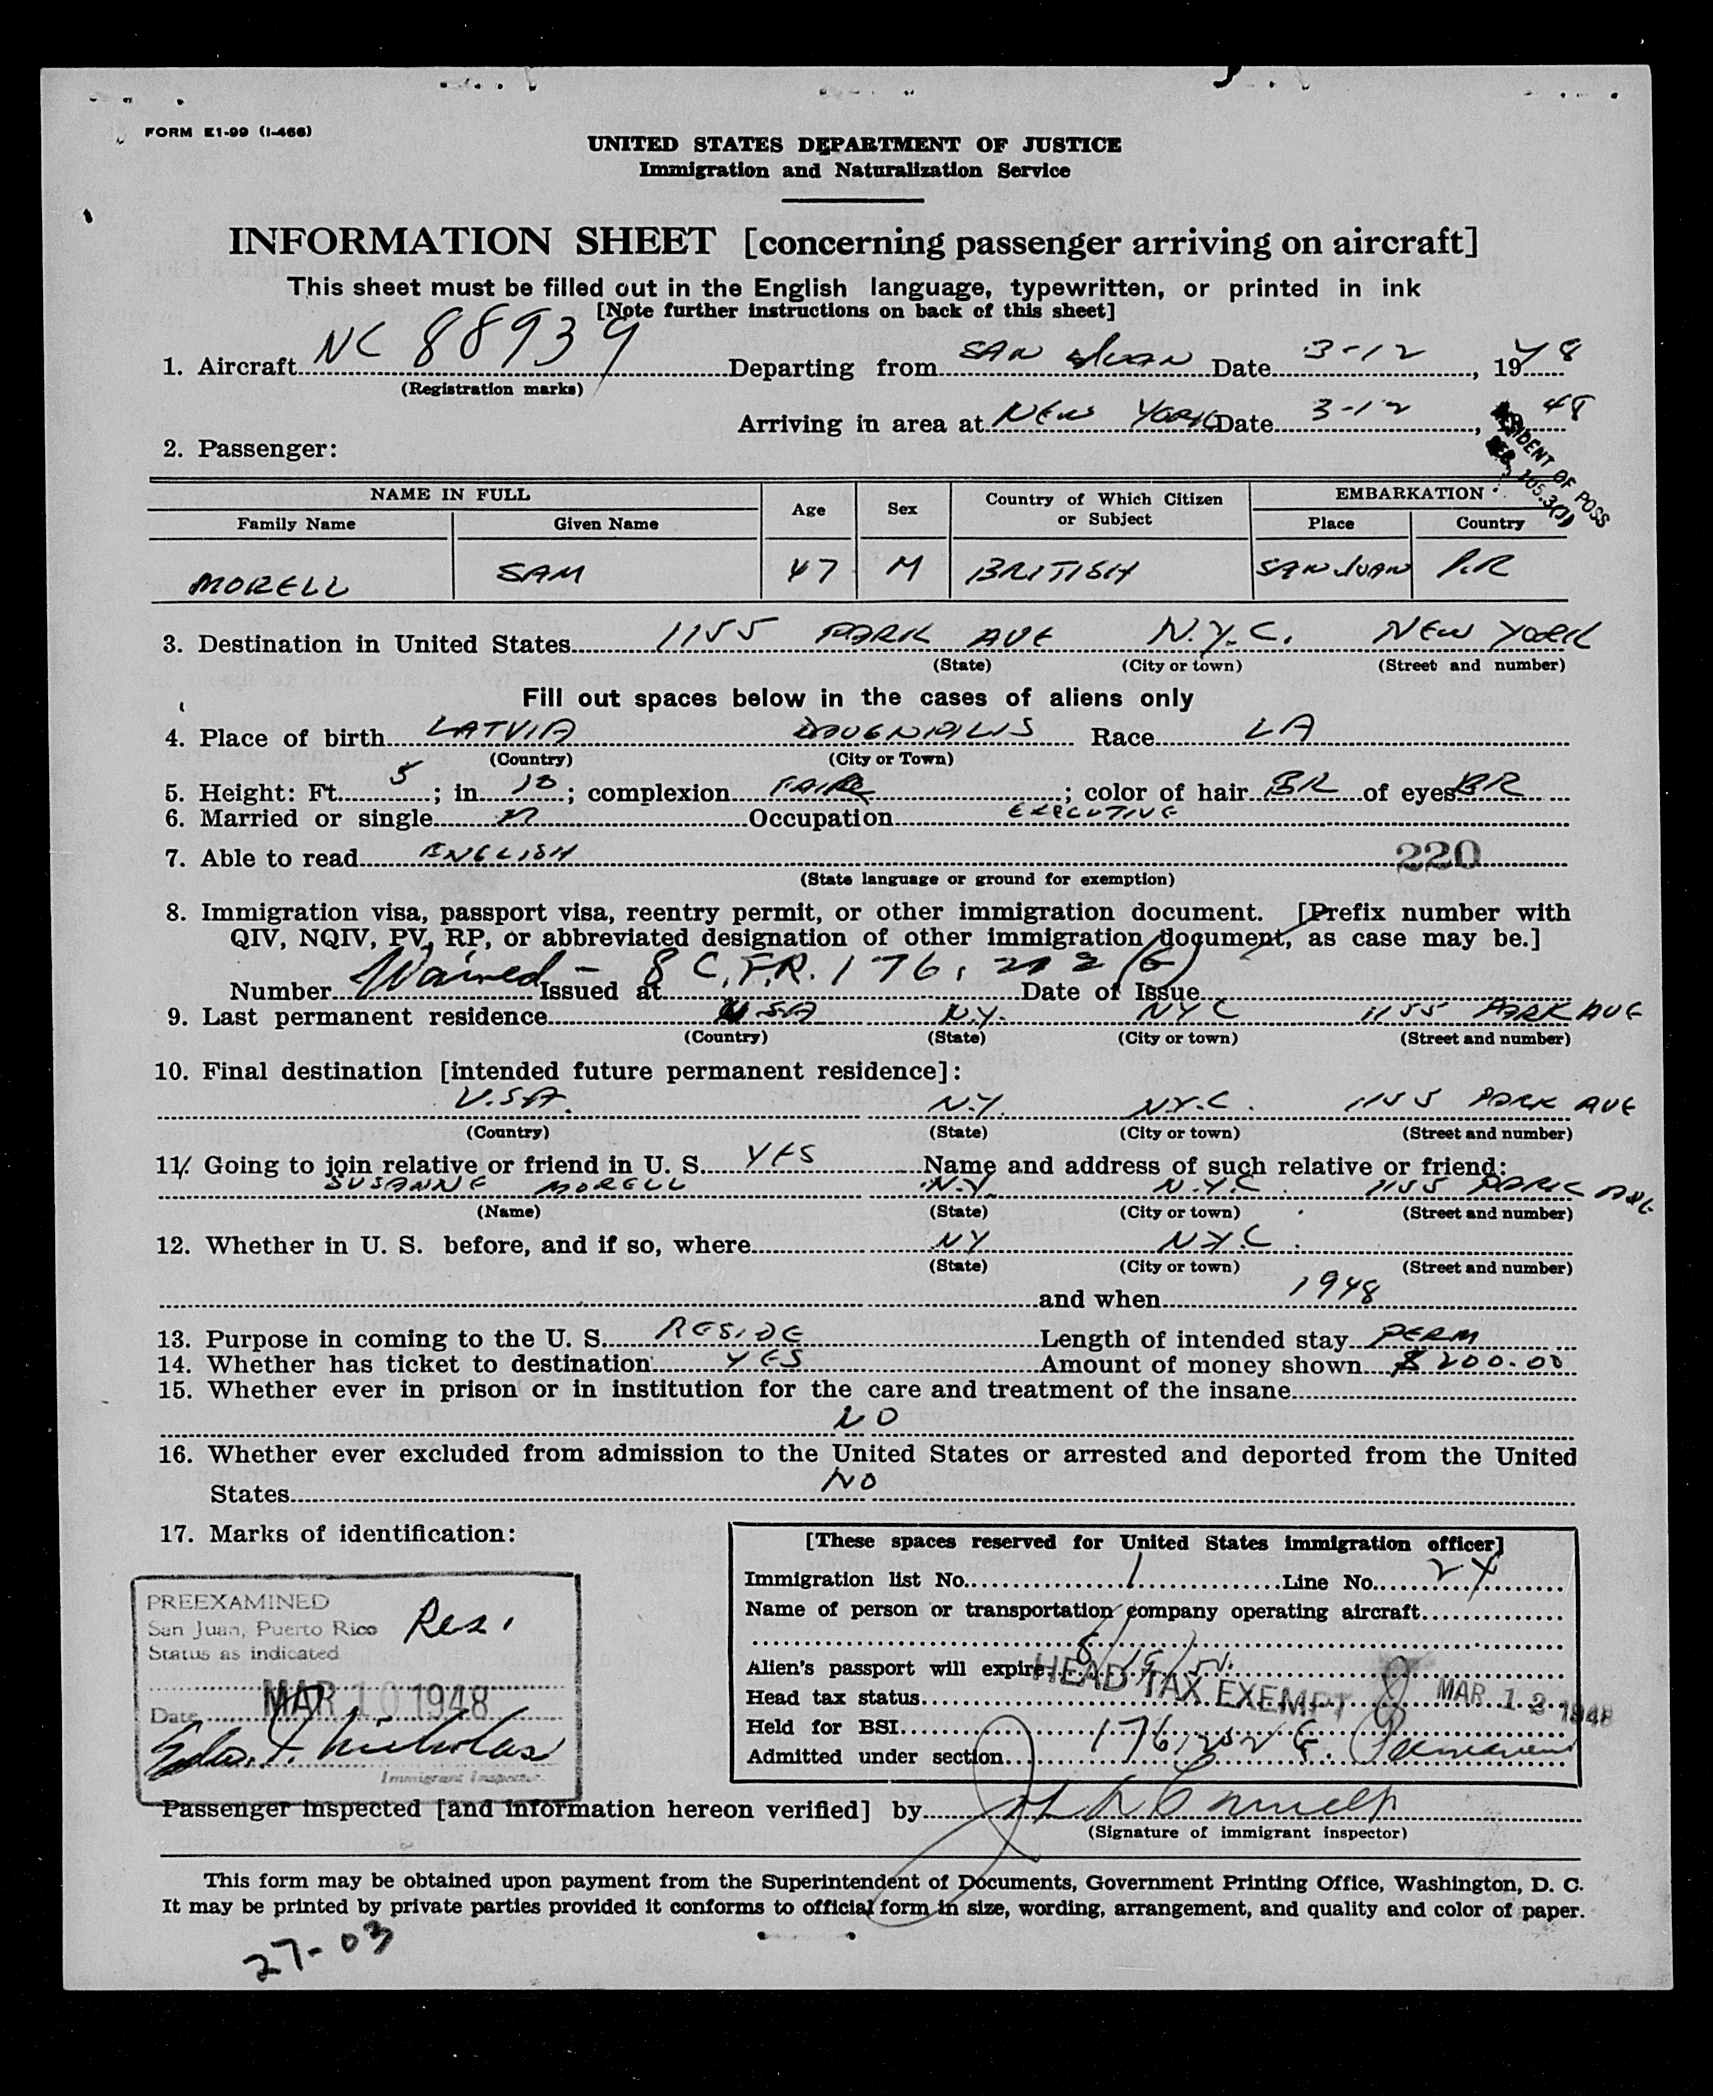 FORM E1-99 (I-466)
UNITED STATES DEPARTMENT OF JUSTICE
Immigration and Naturalization Service
INFORMATION SHEET [concerning passenger arriving on aircraft]
This sheet must be filled out in the English language, typewritten, or printed in ink
[Note further instructions on back of this sheet]
1. Aircraft NC 88939 Departing from SAN JUAN Date 3-12, 1948
(Registration marks)
Arriving in area at NEW YORK Date 3-12, 48
2. Passenger:
NAME IN FULL Age Sex Country of Which Citizen or Subject EMBARKATION
Family Name Given Name Place Country
MORELL SAM 47 M BRITISH SAN JUAN P.R
3. Destination in United States 1155 PARK AVE N.Y.C. NEW YORK
(State) (City or town) (Street and number)
Fill out spaces below in the cases of aliens only
4. Place of birth LATVIA Race LA
(Country) (City or Town)
5. Height: Ft. 5; in. 10; complexion FAIR; color of hair BR of eyes BR
6. Married or single M Occupation EXECUTIVE
7. Able to read ENGLISH 220
(State language or ground for exemption)
8. Immigration visa, passport visa, reentry permit, or other immigration document. [Prefix number with
QIV, NQIV, PV, RP, or abbreviated designation of other immigration document, as case may be.]
Number Waived - 8 C.F.R. 176.202(G) Issued at Date of Issue
9. Last permanent residence USA N.Y. NYC 1155 PARK AVE
(Country) (State) (City or town) (Street and number)
10. Final destination [intended future permanent residence]:
U.S.A. N.Y. N.Y.C. 1155 PARK AVE
(Country) (State) (City or town) (Street and number)
11. Going to join relative or friend in U. S. YES Name and address of such relative or friend:
SUSANNE MORELL N.Y. N.Y.C. 1155 PARK AVE
(Name) (State) (City or town) (Street and number)
12. Whether in U. S. before, and if so, where NY N.Y.C.
(State) (City or town) (Street and number)
and when 1948
13. Purpose in coming to the U. S. RESIDE Length of intended stay PERM
14. Whether has ticket to destination YES Amount of money shown $200.00
15. Whether ever in prison or in institution for the care and treatment of the insane
NO
16. Whether ever excluded from admission to the United States or arrested and deported from the United
States NO
17. Marks of identification:
PREEXAMINED
San Juan, Puerto Rico Res.
Status as indicated
Date MAR 10 1948
Immigrant Inspector
[These spaces reserved for United States immigration officer]
Immigration list No. 1 Line No. 24
Name of person or transportation company operating aircraft
Alien's passport will expire 8/19/51
Head tax status HEAD TAX EXEMPT MAR 12 1948
Held for BSI
Admitted under section 176.202 G. Permanent
Passenger inspected [and information hereon verified] by
(Signature of immigrant inspector)
This form may be obtained upon payment from the Superintendent of Documents, Government Printing Office, Washington, D. C.
It may be printed by private parties provided it conforms to official form in size, wording, arrangement, and quality and color of paper.
27-03